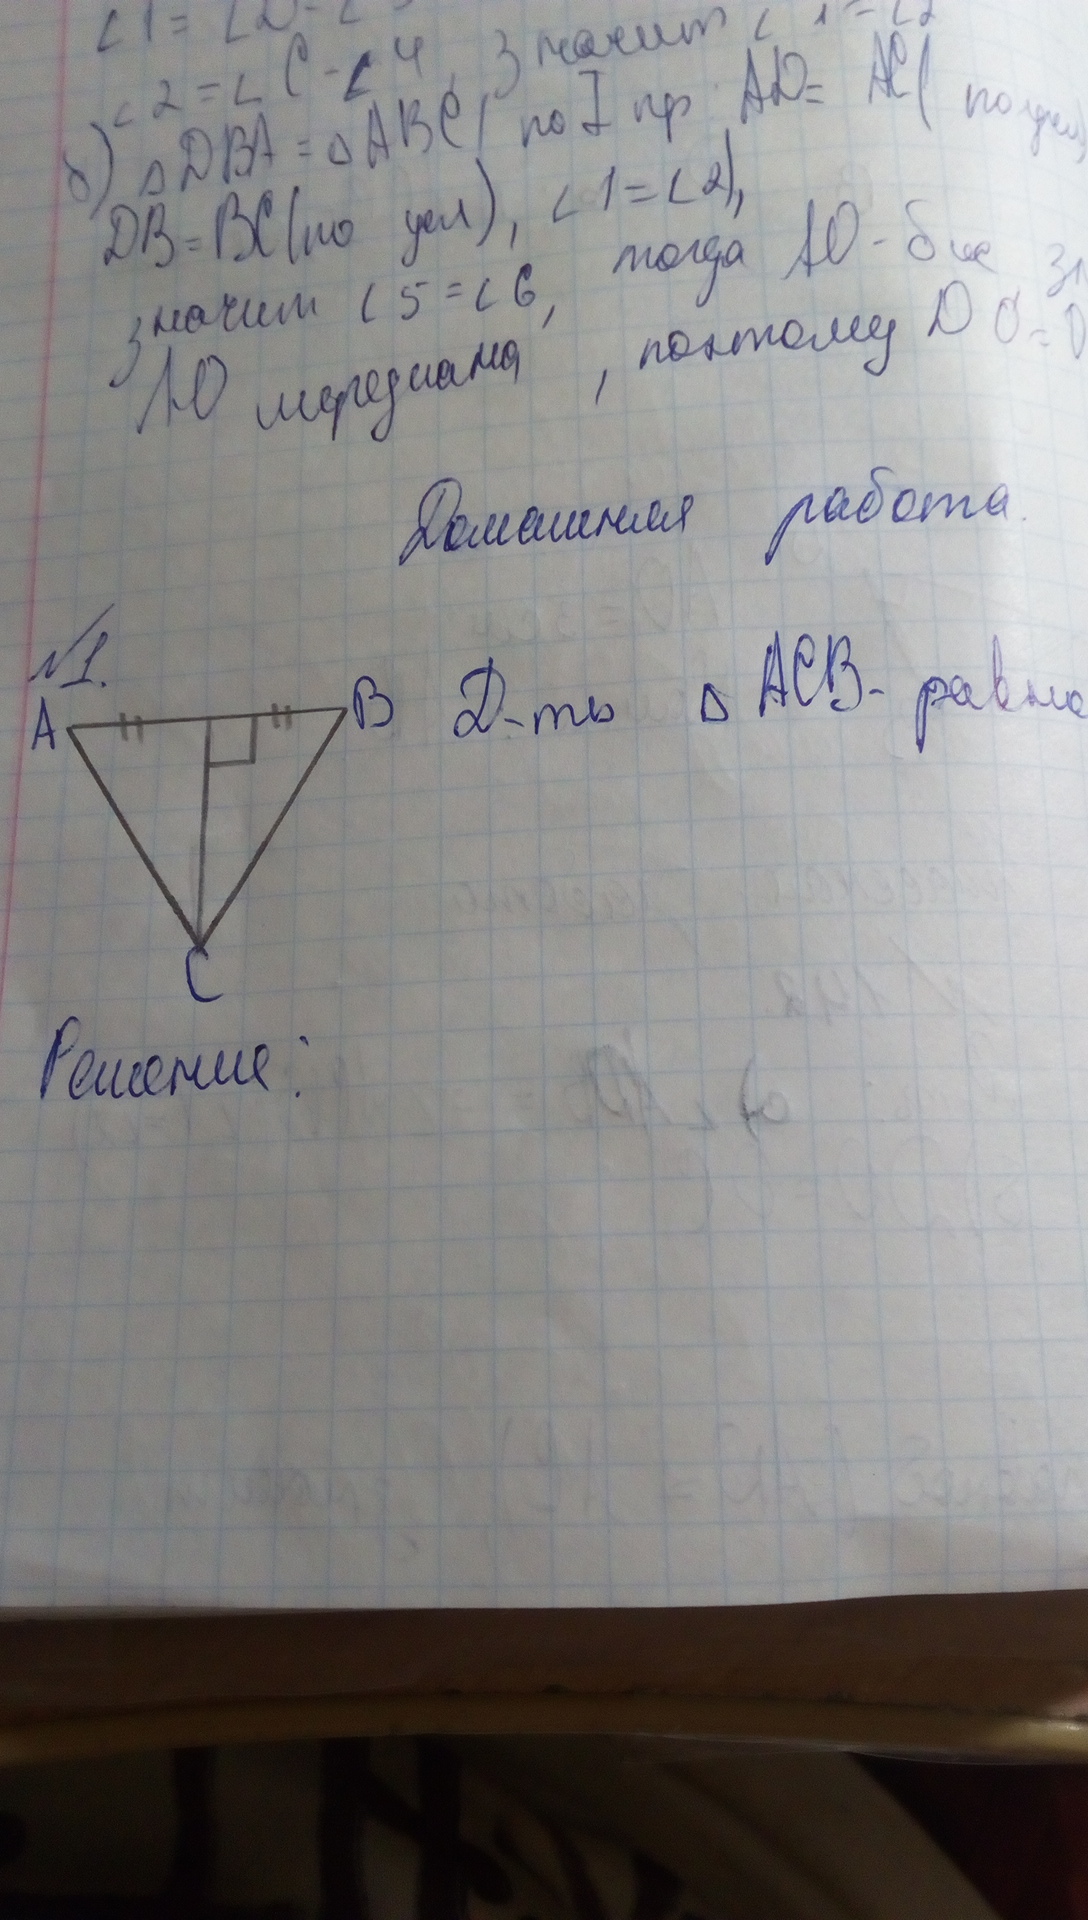 ∠1 = ∠D - ∠3
∠2 = ∠C - ∠4, значит ∠1 = ∠2
б) △DBA = △ABC( по I пр. AD = AC( по усл),
DB = BC(по усл), ∠1 = ∠2),
значит ∠5 = ∠6, тогда AO - бис зн
AO медиана, поэтому DO = O
Домашняя работа.
№1.
A B Д-ть △ ACB - равно
C
Решение: